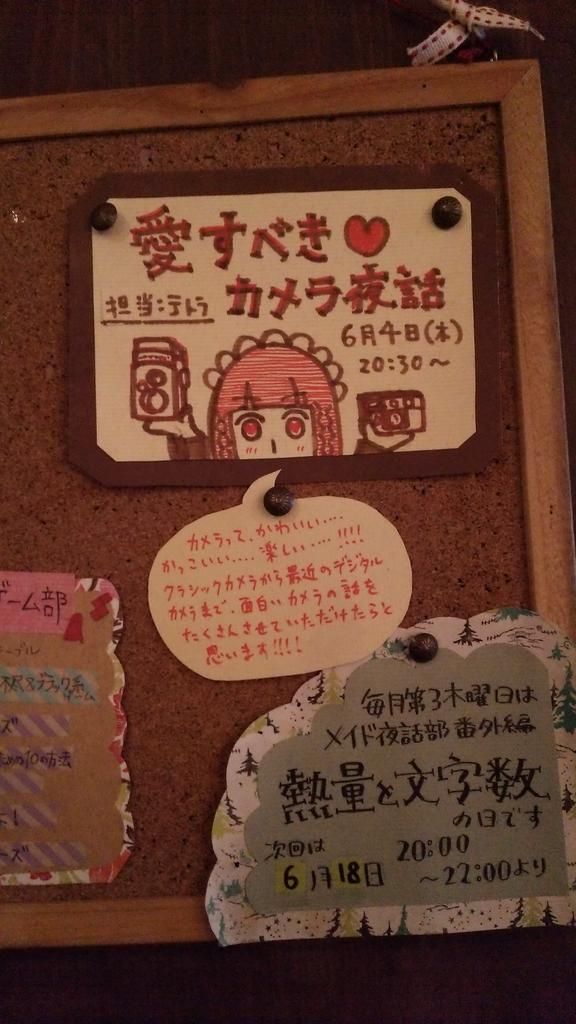 愛すべき♥
カメラ夜話
担当:テトラ
6月4日(木)
20:30〜
カメラって、かわいい‥‥
かっこいい‥‥楽しい‥‥!!!!
クラシックカメラから最近のデジタル
カメラまで、面白いカメラの話を
たくさんさせていただけたらと
思います!!!!
ゲーム部
ーブル
&ブラック系
ゲーム
ズ
ための10の方法
!
ーズ
毎月第3木曜日は
メイド夜話部番外編
熱量と文字数
の日です
次回は 20:00
6月18日 〜22:00より